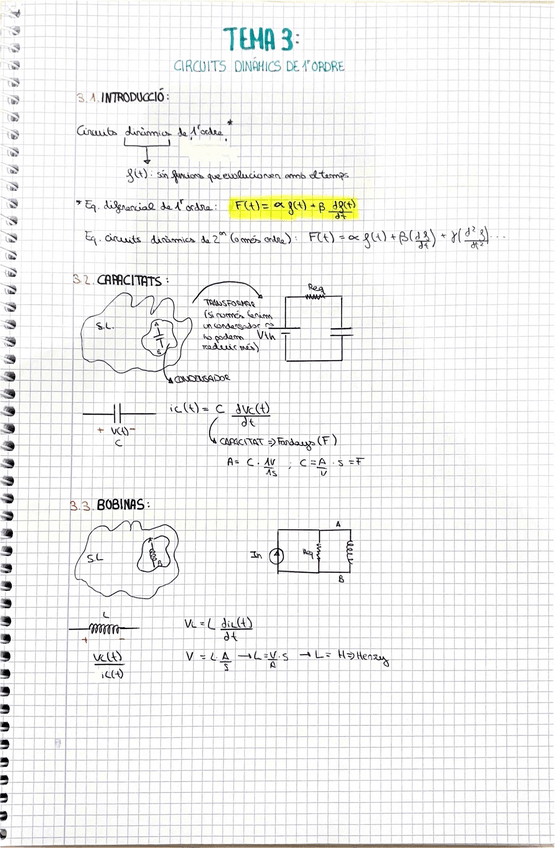 TEMA 3:
CIRCUITS DINÀMICS DE 1r ORDRE
3.1. INTRODUCCIÓ:
Circuits dinàmics de 1r ordre*
f(t): són funcions que evolucionen amb el temps
* Eq. diferencial de 1r ordre: F(t) = α f(t) + β df(t)/dt
Eq. circuits dinàmics de 2on (o més ordre): F(t) = α f(t) + β(df/dt) + γ(d²f/dt²)...
3.2. CAPACITATS:
S.L.
A
B
CONDENSADOR
TRANSFORMAR
(si només tenim
un condensador no
ho podem
reduir més)
Req
Vth
+ V(t) -
C
ic(t) = C dVc(t)/dt
CAPACITAT => Faradays (F)
A = C · 1V/1s ; C = A/V · s = F
3.3. BOBINAS:
S.L
A
In
Req
A
B
L
+ -
VL(t)
iL(t)
VL = L diL(t)/dt
V = L A/s → L = V/A · s → L = H => Henry